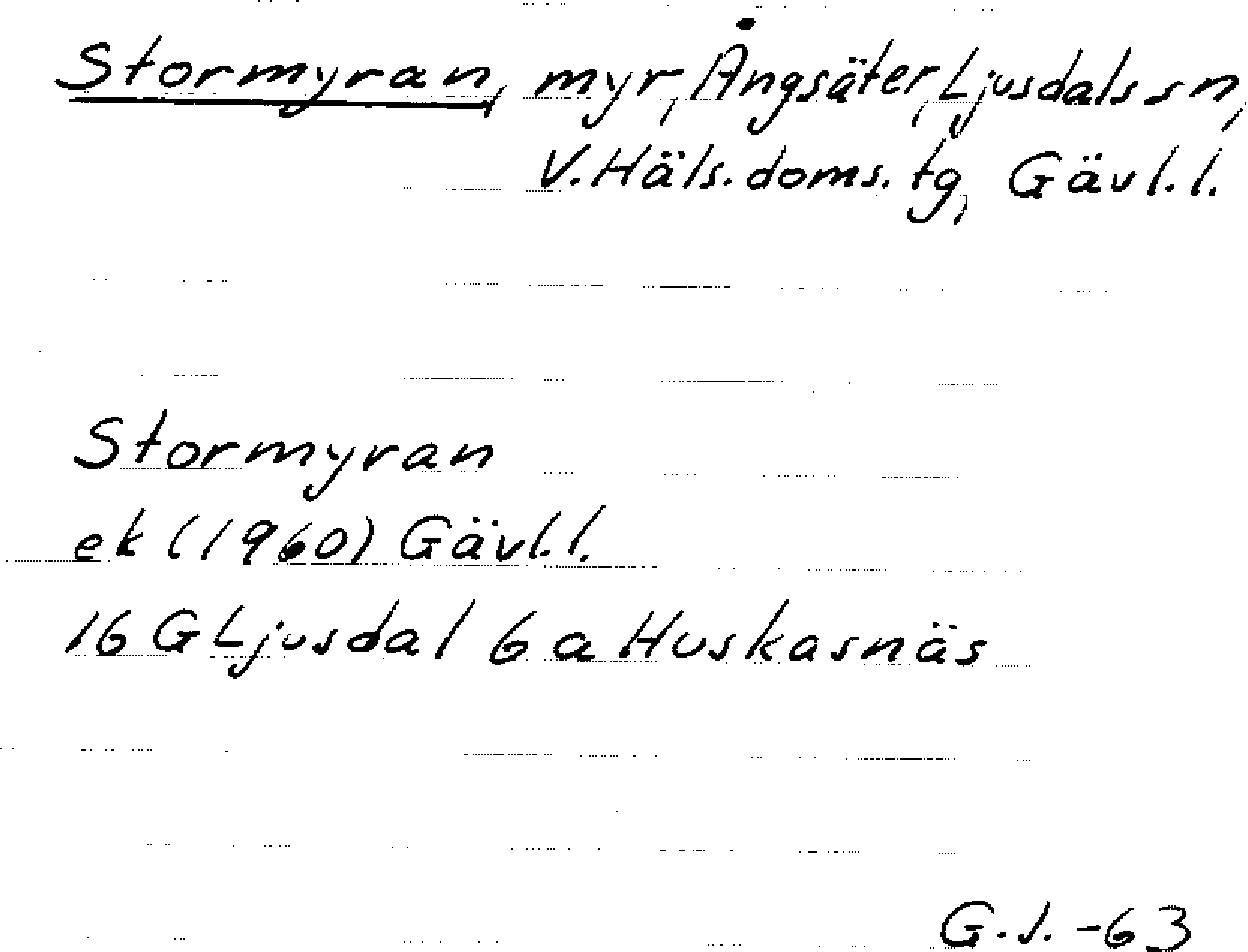 Stormyran, myr, Ångsäter, Ljusdals sn,
V. Häls. doms. tg, Gävl. l.
Stormyran
ek (1960) Gävl. l.
16 G Ljusdal 6 a Huskasnäs
G. J. -63